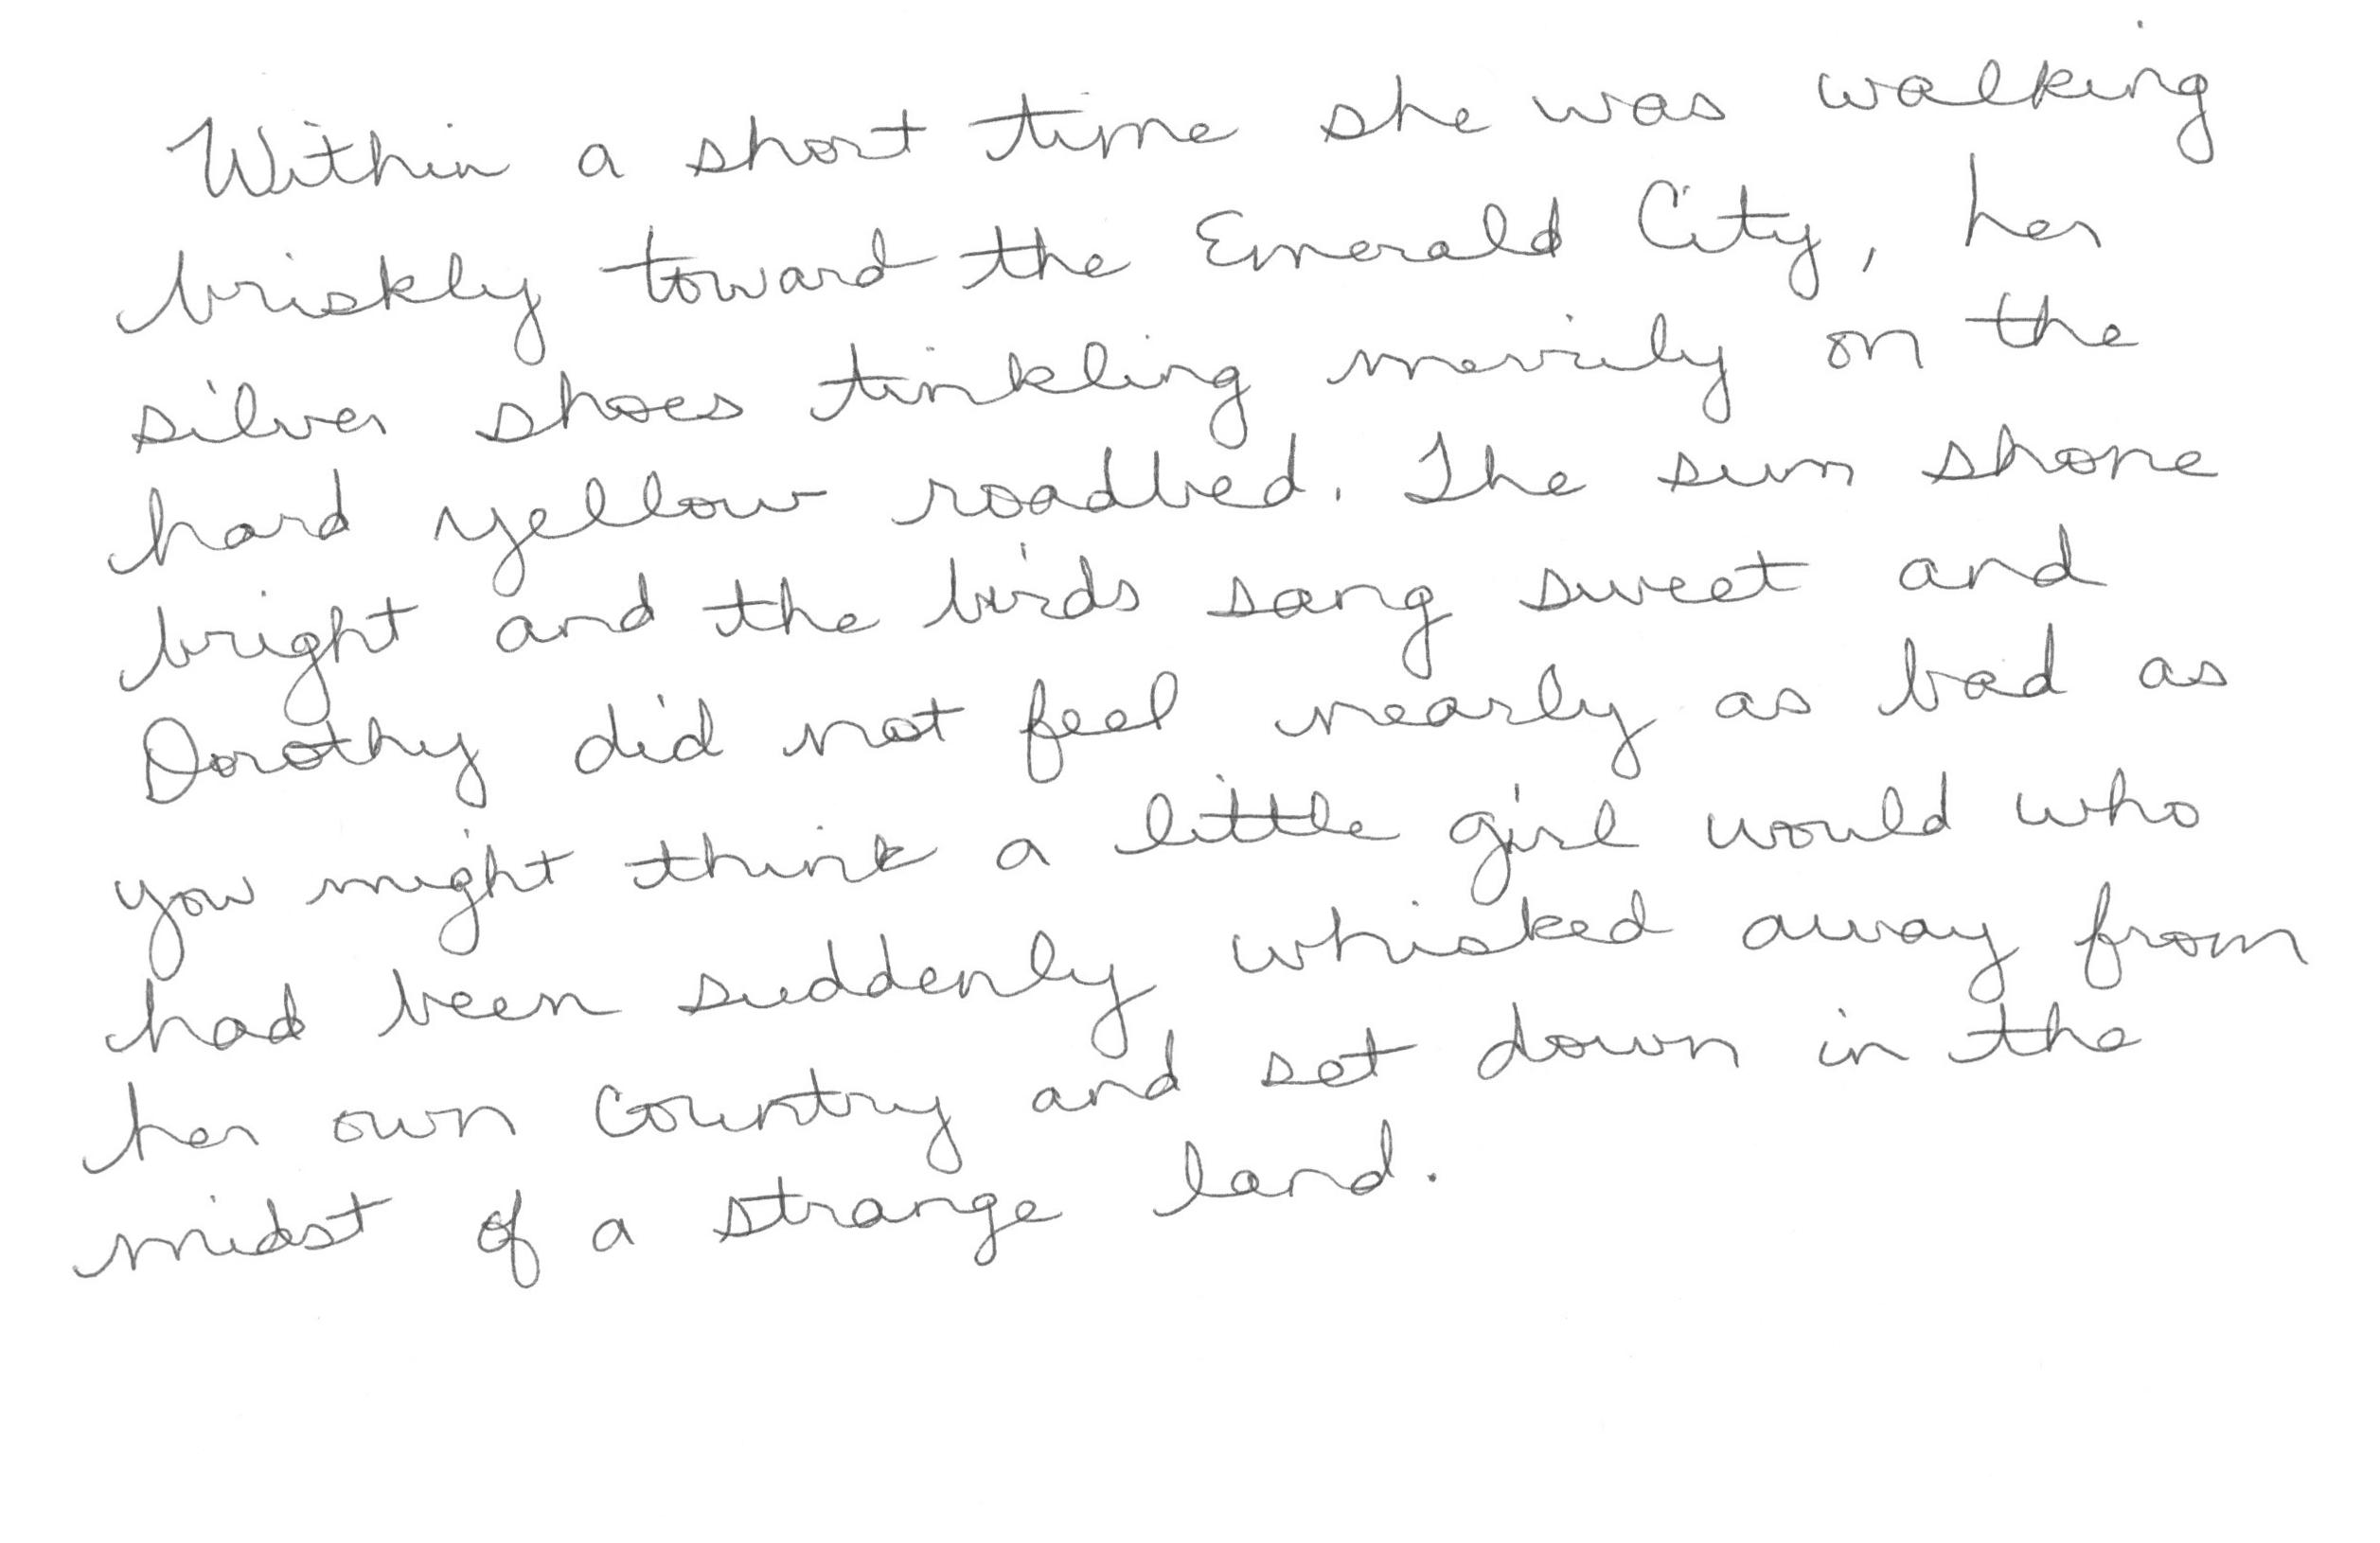 Within a short time she was walking
briskly toward the Emerald City, her
silver shoes tinkling merrily on the
hard yellow roadbed. The sun shone
bright and the birds sang sweet and
Dorothy did not feel nearly as bad as
you might think a little girl would who
had been suddenly whisked away from
her own country and set down in the
midst of a strange land.